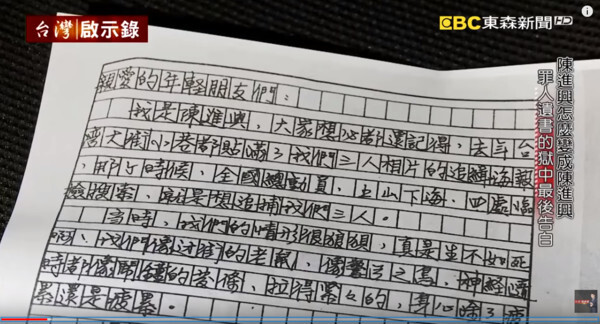 台灣啟示錄
EBC 東森新聞 HD
陳進興怎麼變成陳進興
罪人遺書的獄中最後告白
親愛的年輕朋友們：
我是陳進興、大家想必都還記得、去年台
灣大街小巷都貼滿了我們三人相片的追緝海報
、那個時候、全國總動員、上山下海、四處臨
檢搜索、就是想追捕我們三人。
當時、我們的情形很狼狽、真是生不如死
啊、我們像過街的老鼠、像驚弓之鳥、神經
時都像開
的發條、拉得緊々的、身心除了疲
累還是疲累。